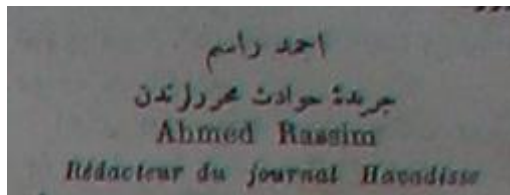 احمد راسم
جريدهٔ حوادث محررلرندن
Ahmed Rassim
Rédacteur du journal Havadisse